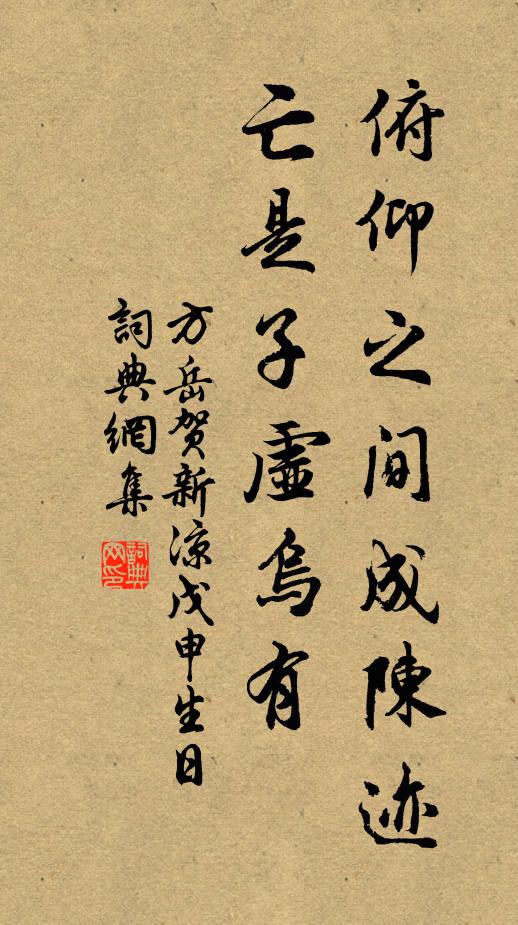 俯仰之间成陳迹
亡是子虛烏有
方岳賀新凉戊申生日
詞典網集
詞典网印